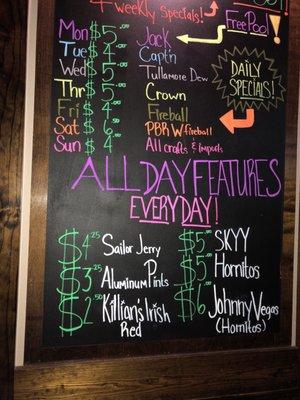 4 weekly Specials!
Free Pool!
Mon $5.00 Jack
Tue $4.00 Capt'n
Wed $5.00 Tullamore Dew
DAILY SPECIALS!
Thr $5.00 Crown
Fri $4.00 Fireball
Sat $6.00 PBR W/fireball
Sun $4.00 All crafts & Imports
ALL DAY FEATURES
EVERYDAY!
$4.25 Sailor Jerry
$3.25 Aluminum Pints
$2.50 Killian's Irish Red
$5.00 SKYY
$5.00 Hornitos
$6.00 Johnny Vegas
(Hornitos)